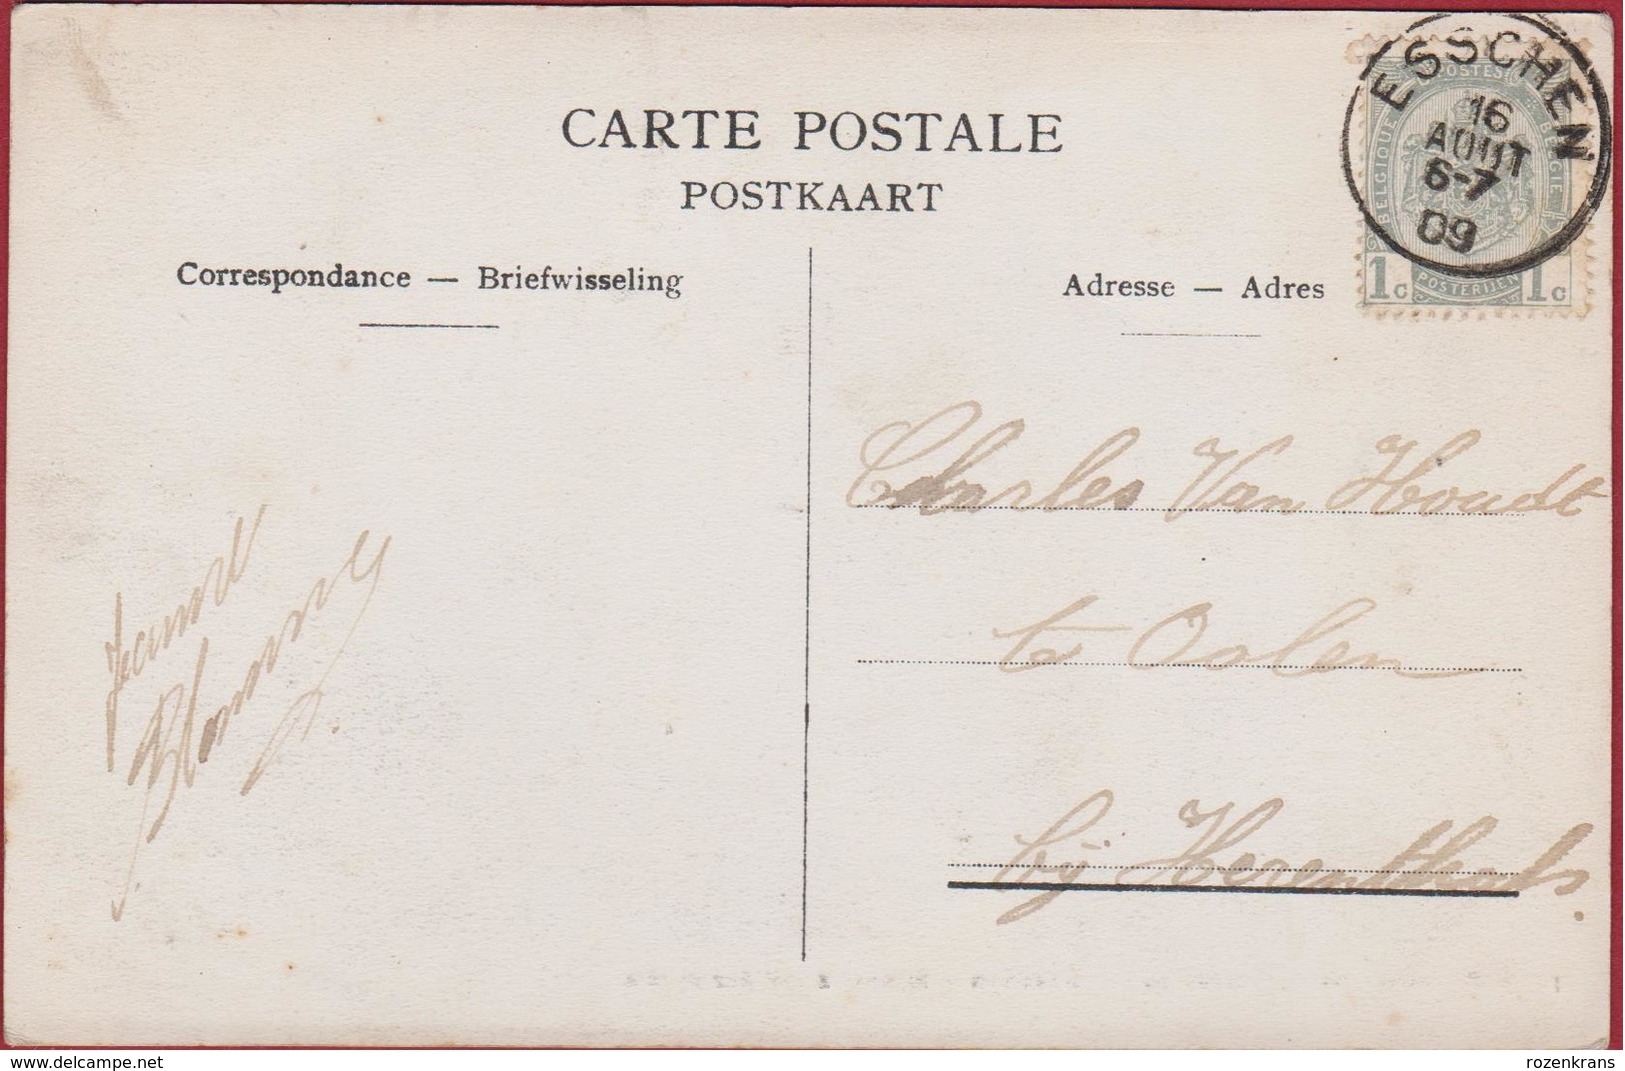 CARTE POSTALE
POSTKAART
Correspondance — Briefwisseling
Adresse — Adres
ESSCHEN
16
AOUT
6-7
09
POSTES
BELGIQUE
BELGIE
1c POSTERIJEN 1c
Charles Van Houdt
te Oolen
bij Herenthals.
www.delcampe.net
rozenkrans